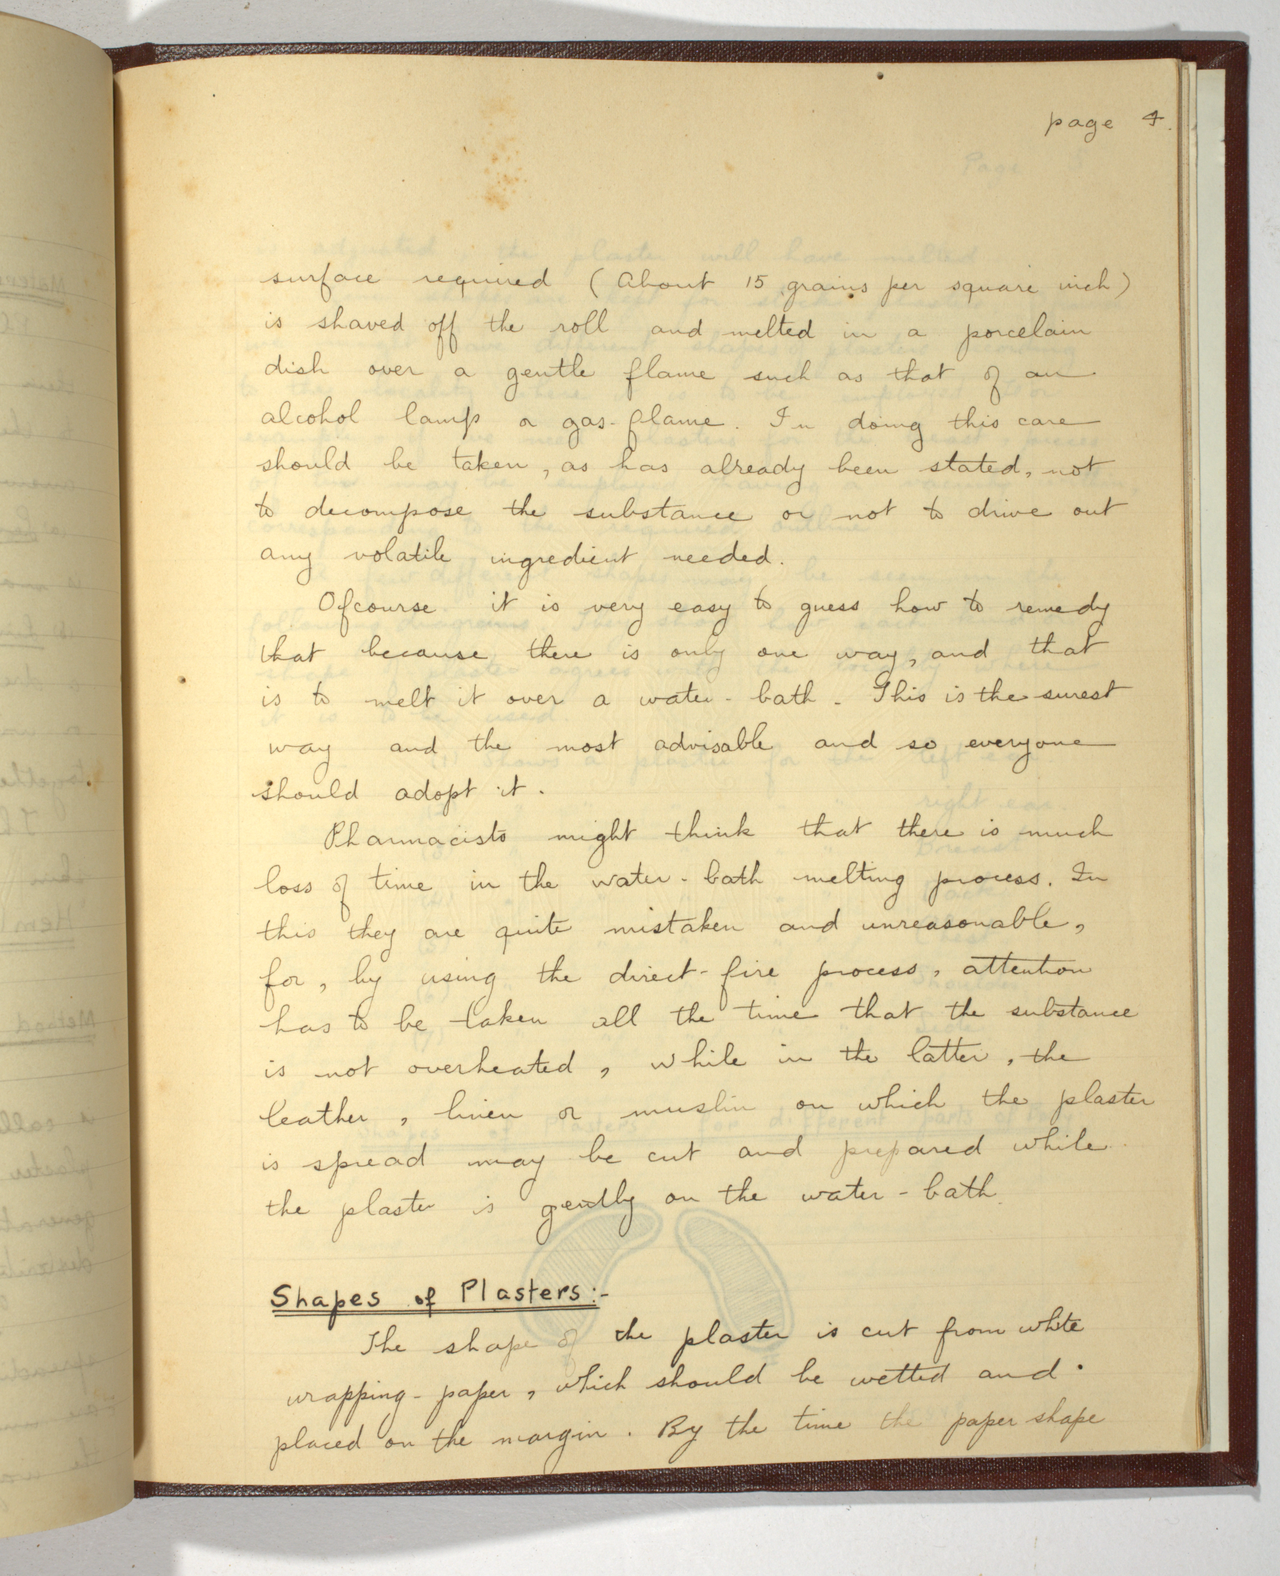 page 4.
surface required (About 15 grains per square inch)
is shaved off the roll and melted in a porcelain
dish over a gentle flame such as that of an
alcohol lamp or gas-flame. In doing this care
should be taken, as has already been stated, not
to decompose the substance or not to drive out
any volatile ingredient needed.
Ofcourse it is very easy to guess how to remedy
that because there is only one way, and that
is to melt it over a water-bath. This is the surest
way and the most advisable and so everyone
should adopt it.
Pharmacists might think that there is much
loss of time in the water-bath melting process. In
this they are quite mistaken and unreasonable,
for, by using the direct-fire process, attention
has to be taken all the time that the substance
is not overheated, while in the latter, the
leather, linen or muslin on which the plaster
is spread may be cut and prepared while
the plaster is gently on the water-bath.
Shapes of Plasters:-
The shape of the plaster is cut from white
wrapping-paper, which should be wetted and
placed on the margin. By the time the paper shape